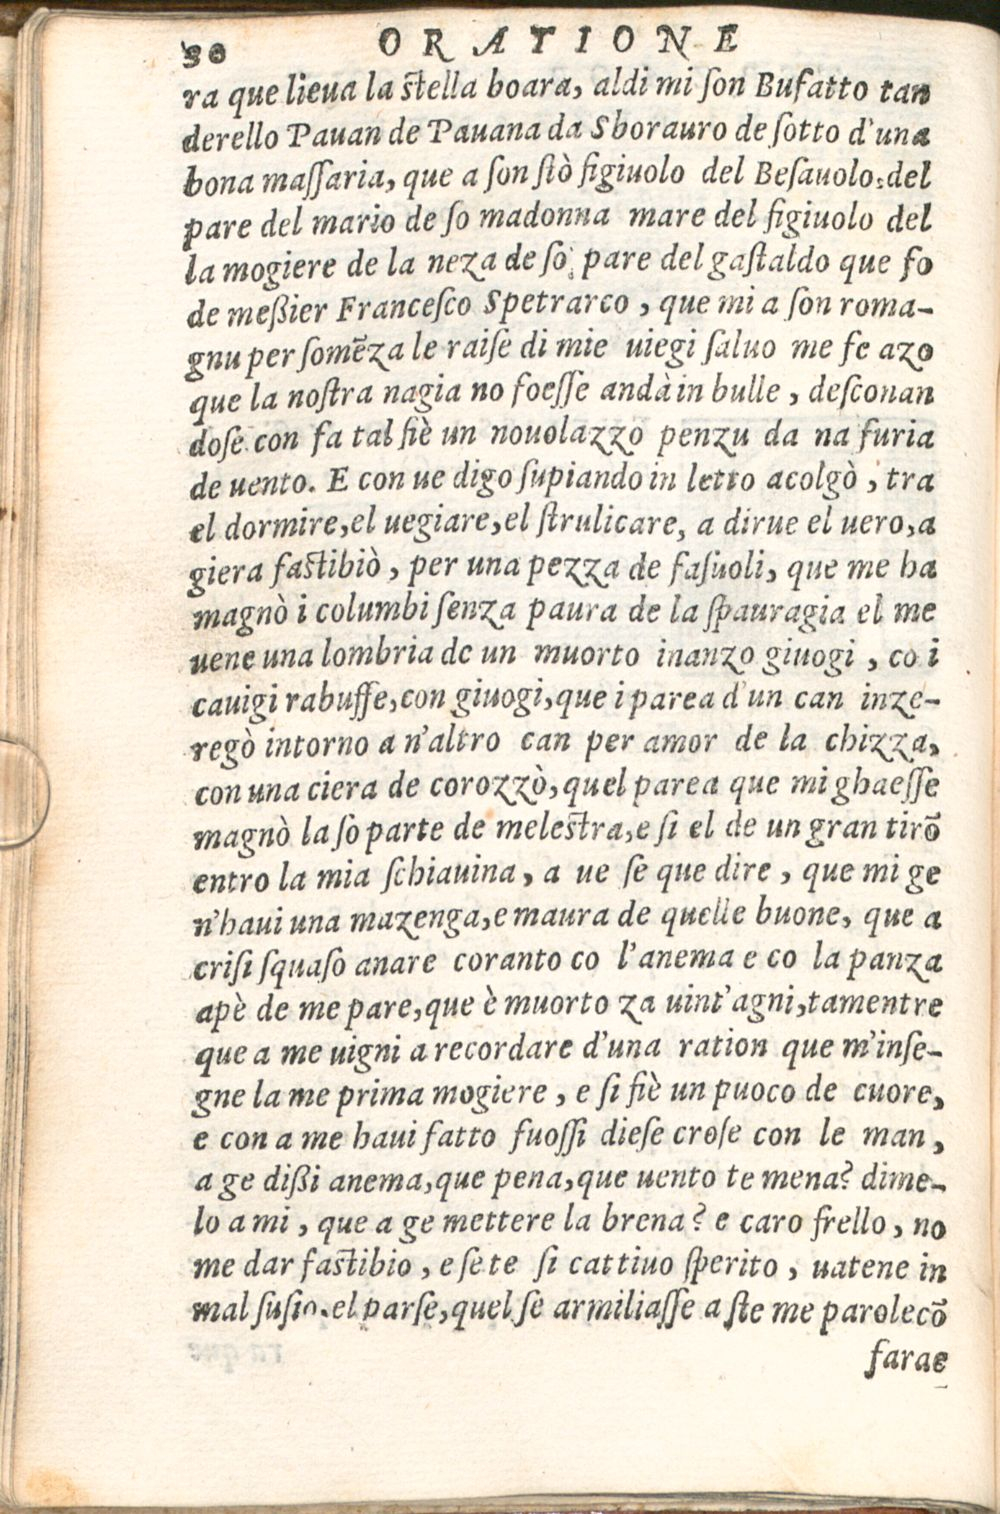 30 ORATIONE
ra que lieua la stella boara, aldi mi son Bufatto tan
derello Pauan de Pauana da Sborauro de sotto d'una
bona massaria, que a son stò figiuolo del Besauolo, del
pare del mario de so madonna mare del figiuolo del
la mogiere de la neza de so, pare del gastaldo que fo
de meßier Francesco Spetrarco, que mi a son roma-
gnu per somẽza le raise di mie uiegi saluo me fe azo
que la nostra nagia no foesse andà in bulle, desconan
dose con fa tal fiè un nouolazzo penzu da na furia
de uento. E con ue digo supiando in letto acolgò, tra
el dormire, el uegiare, el strulicare, a dirue el uero, a
giera fastibiò, per una pezza de fasuoli, que me ha
magnò i columbi senza paura de la spauragia el me
uene una lombria de un muorto inanzo giuogi, co i
cauigi rabuffe, con giuogi, que i parea d'un can inze-
regò intorno a n'altro can per amor de la chizza,
con una ciera de corozzò, quel parea que mi ghaesse
magnò la so parte de melestra, e si el de un gran tirõ
entro la mia schiauina, a ue se que dire, que mi ge
n'haui una mazenga, e maura de quelle buone, que a
crisi squaso anare coranto co l'anema e co la panza
apè de me pare, que è muorto za uint'agni, tamentre
que a me uigni a recordare d'una ration que m'inse-
gne la me prima mogiere, e si fiè un puoco de cuore,
e con a me haui fatto fuossi diese crose con le man,
a ge dißi anema, que pena, que uento te mena? dime-
lo a mi, que a ge mettere la brena? e caro frello, no
me dar fastibio, e se te si cattiuo sperito, uatene in
mal susio. el parse, quel se armiliasse a ste me parole cõ
farae